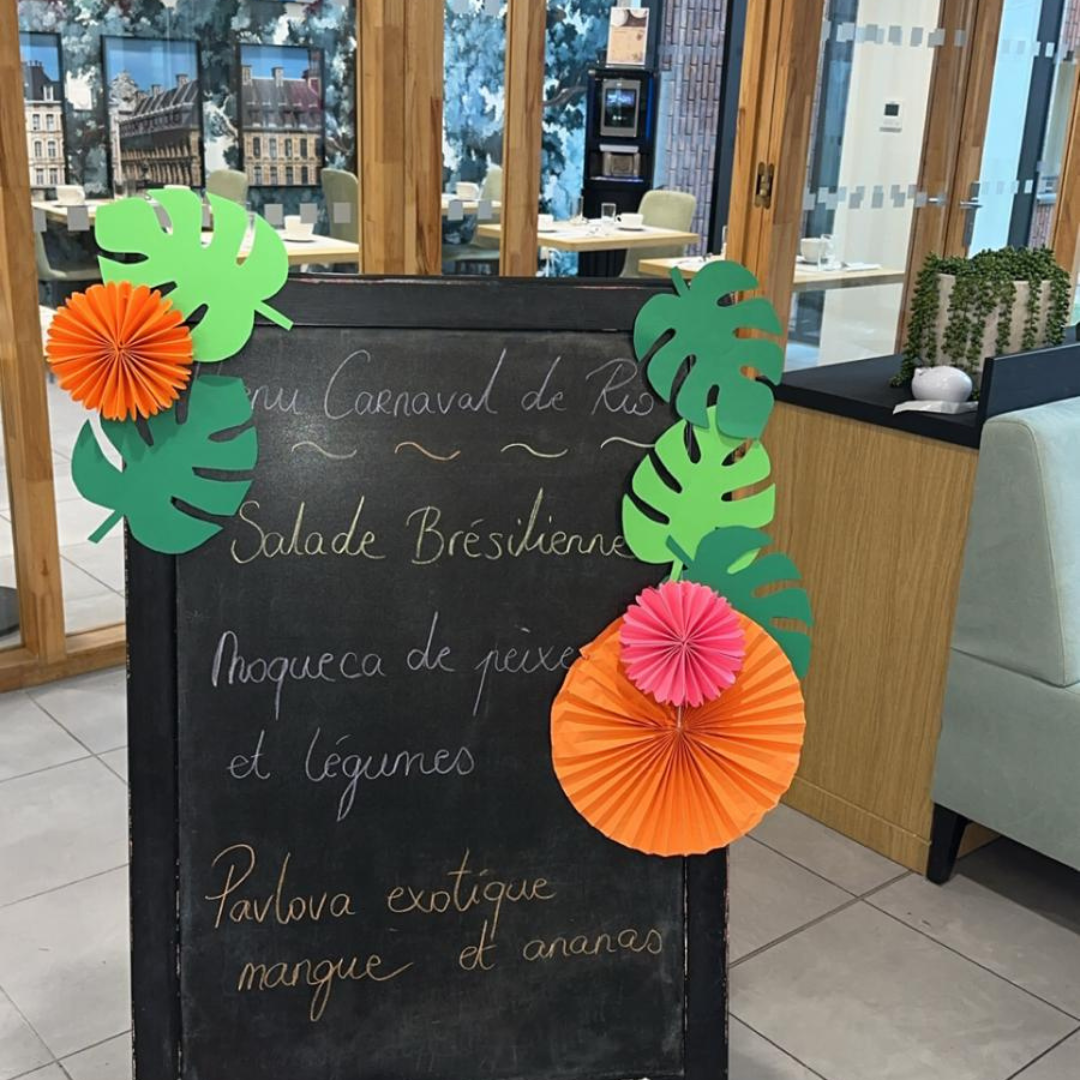 enu Carnaval de Rio
Salade Brésilienne
Moqueca de peixe
et légumes
Pavlova exotique
mangue et ananas